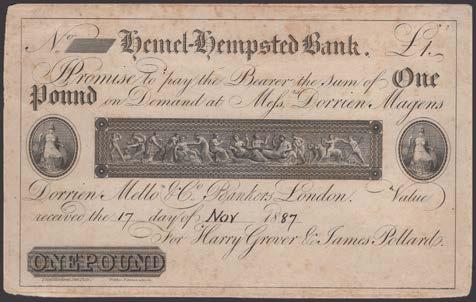 No Hemel-Hempsted Bank. £1.
I Promise to pay the Bearer the Sum of One
Pound on Demand at Messrs. Dorrien Magens
Dorrien Mello & Co. Bankers London. Value
received the 17 day of Nov 1887
For Harry Grover & James Pollard.
ONE POUND